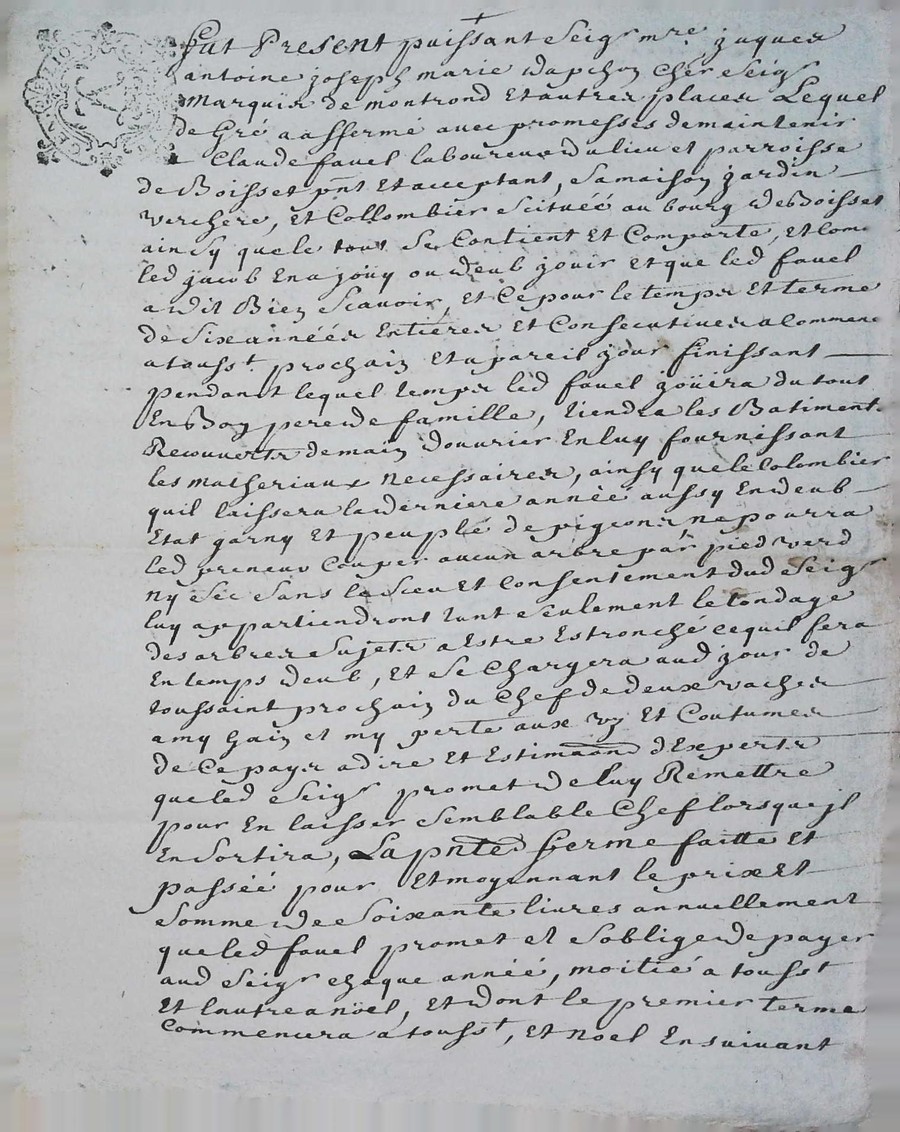 Fut Present puissant Seigr mre jaques
antoine joseph marie dapchon cher Seigr
Marquis de montrond Et autres places Lequel
de Gré a affermé avec promesses de maintenir
a Claude favel laboureur du lieu et parroisse
de Boisset pnt Et acceptant, Sa maison jardin
verchere, et Collombier Scitueé au bourg de Boisset
ainsy que le tout Se Contient Et Comporte, et Com
led jacob En a joüy ou deub joüir Et que led favel
a dit Bien Scavoir, et Ce pour le temps Et terme
de Six anneés Entieres et Consecutives a Commenc
a tousst prochain Et a pareil jour finissant
pendant lequel temps led favel joüira du tout
En Bon pere de famille, tiendra les Batiments
Recouverts de main d'ouvrier En luy fournissant
les matheriaux necessaires, ainsy que le Colombier
quil laissera la derniere anneé aussy En deub
Etat garny Et peuplé de pigeons ne pourra
led preneur Couper aucun arbre par pied verd
ny Sec Sans le Sceu Et Consentement dud Seigr
luy appartiendront tant Seulement le tondage
des arbres Sujets a Estre Estronché ce quil fera
En temps deub, Et Se Chargera aud jour de
toussaint prochain du Chef de deux vaches
a my Gain et my perte aux us Et Coutumes
de Ce pays a dire Et Estimaon d'Experts
que led Seigr promet de luy Remettre
pour En laisser Semblable Chef lorsque jl
En Sortira, La pnte ferme faitte Et
passeé pour Et moyennant le prix Et
Somme de Soixante livres annuellement
que led favel promet et Soblige de payer
aud Seigr chaque anneé, moitié a tousst
Et l'autre a noël, Et dont le premier terme
Commencera a tousst, Et noel En suivant